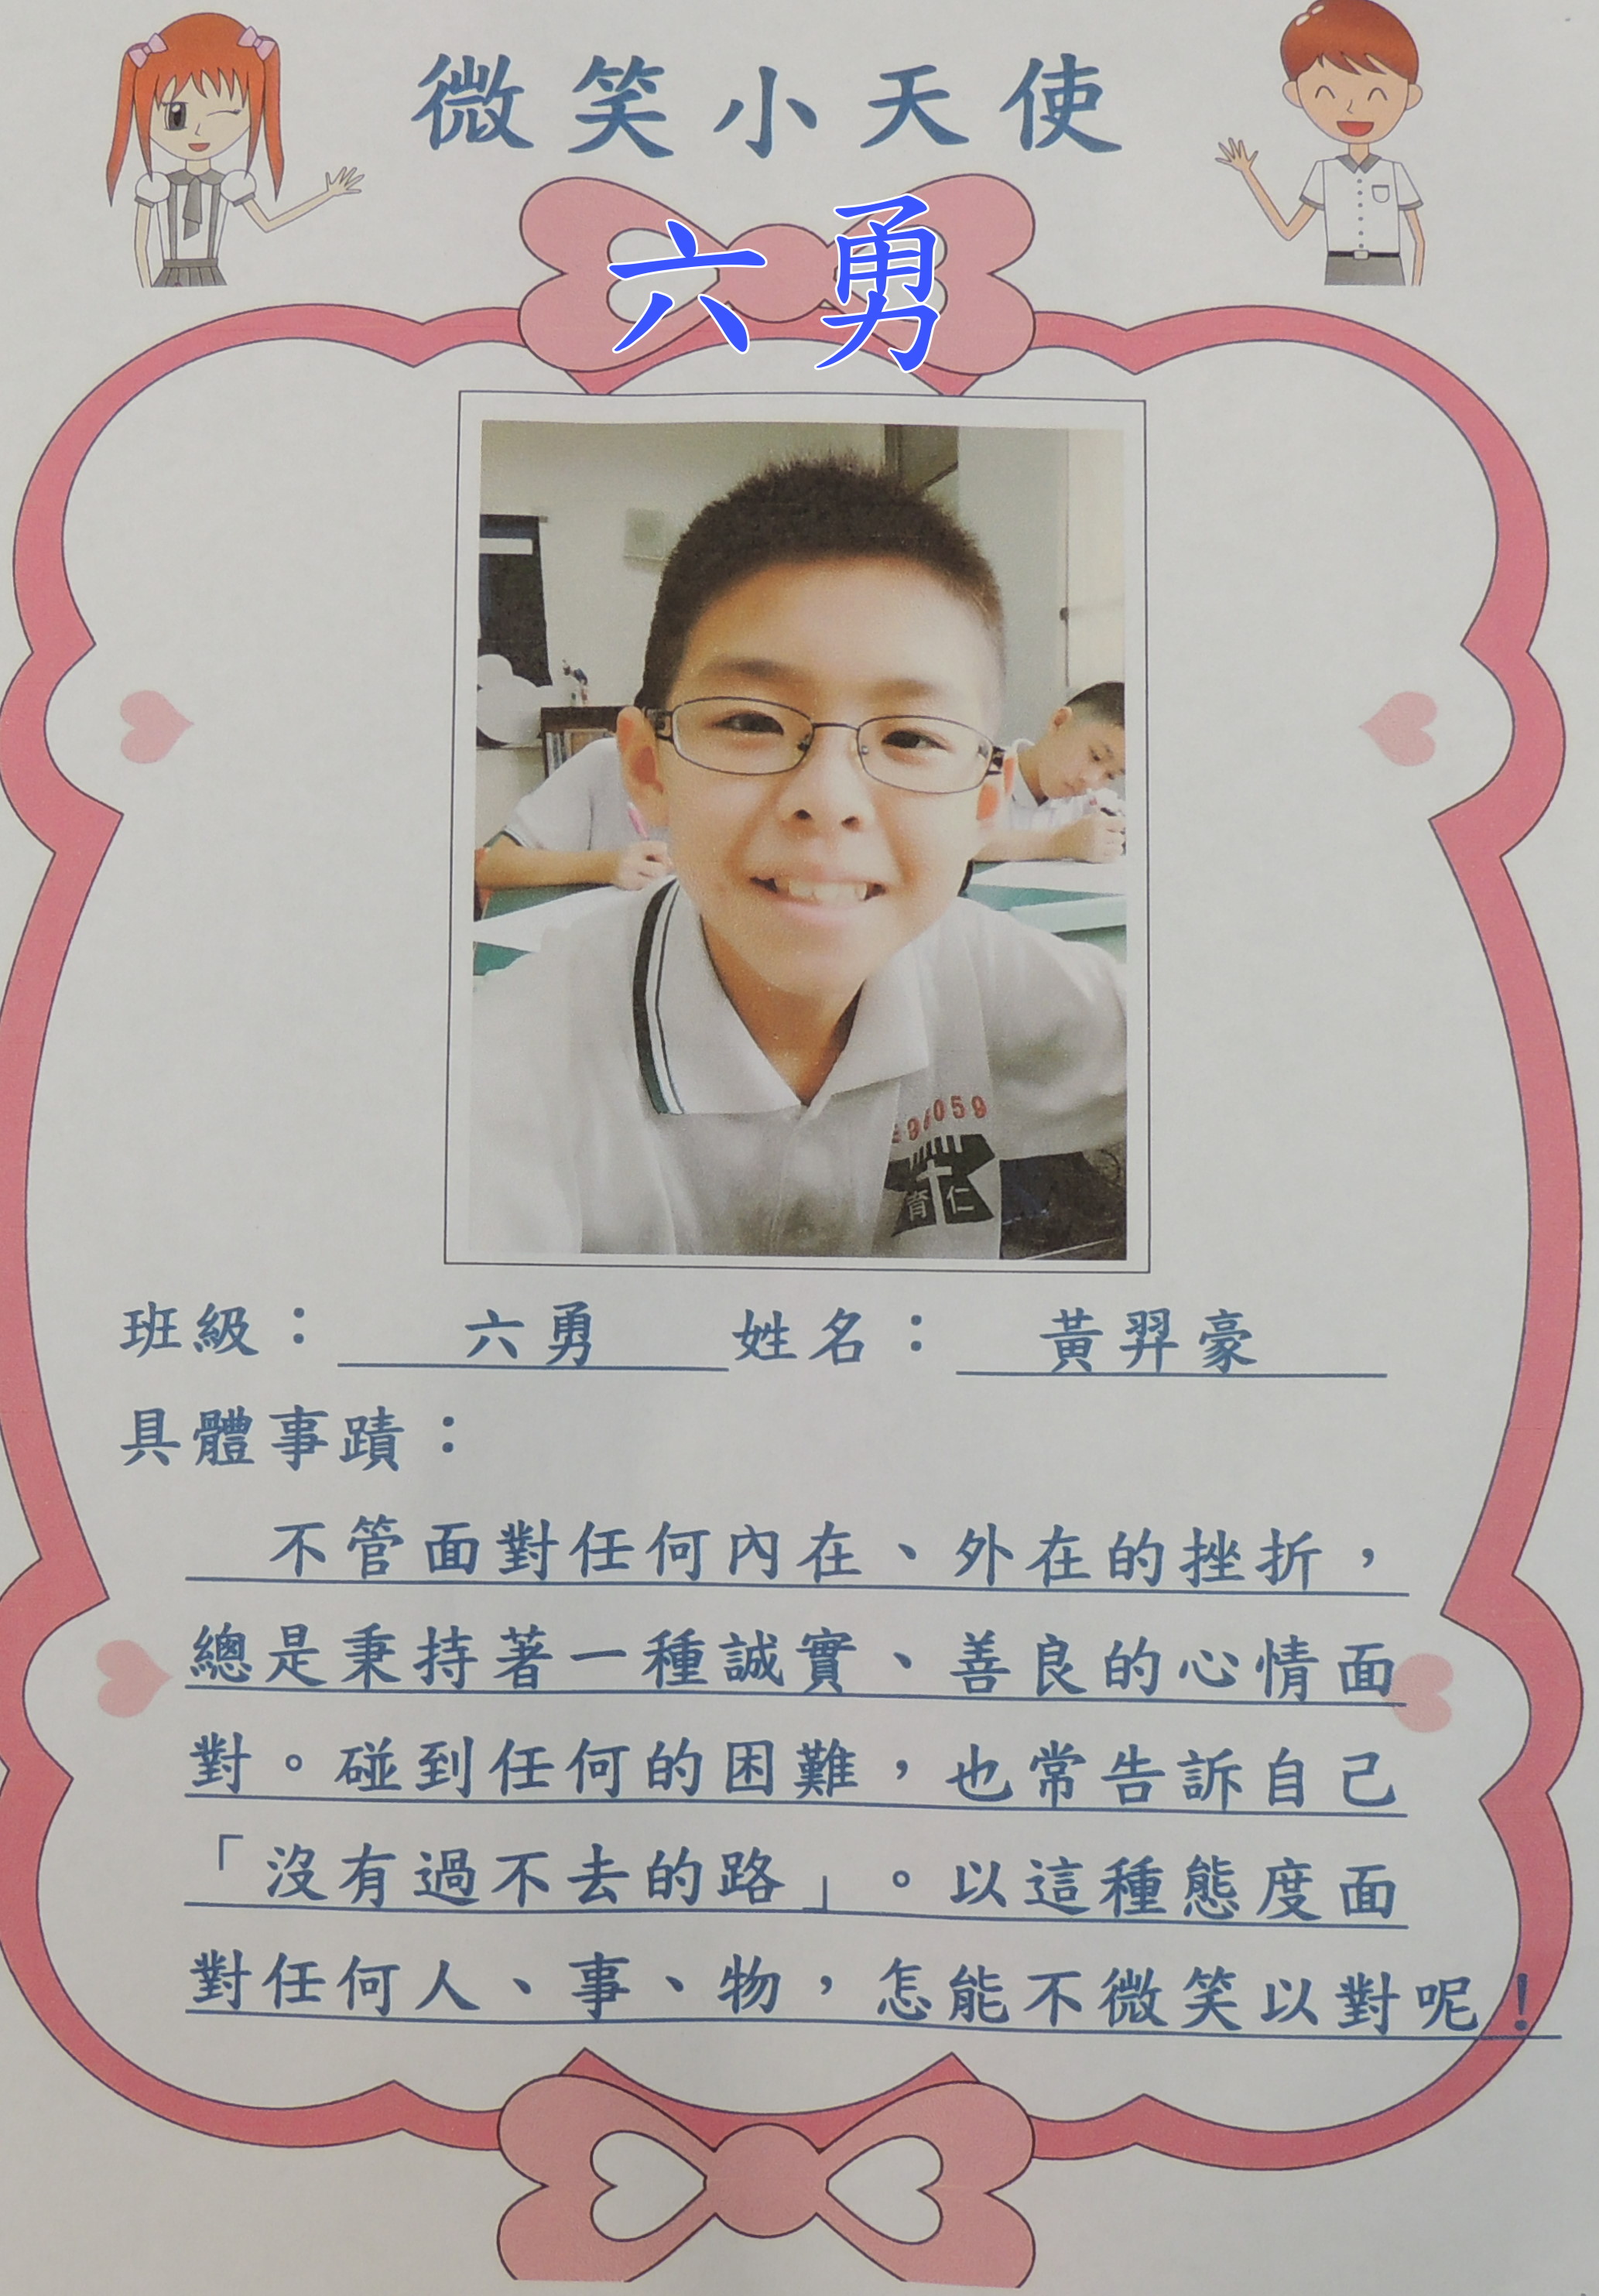 微笑小天使
六勇
059
育仁
班級：六勇 姓名：黃羿豪
具體事蹟：
不管面對任何內在、外在的挫折，
總是秉持著一種誠實、善良的心情面
對。碰到任何的困難，也常告訴自己
「沒有過不去的路」。以這種態度面
對任何人、事、物，怎能不微笑以對呢！